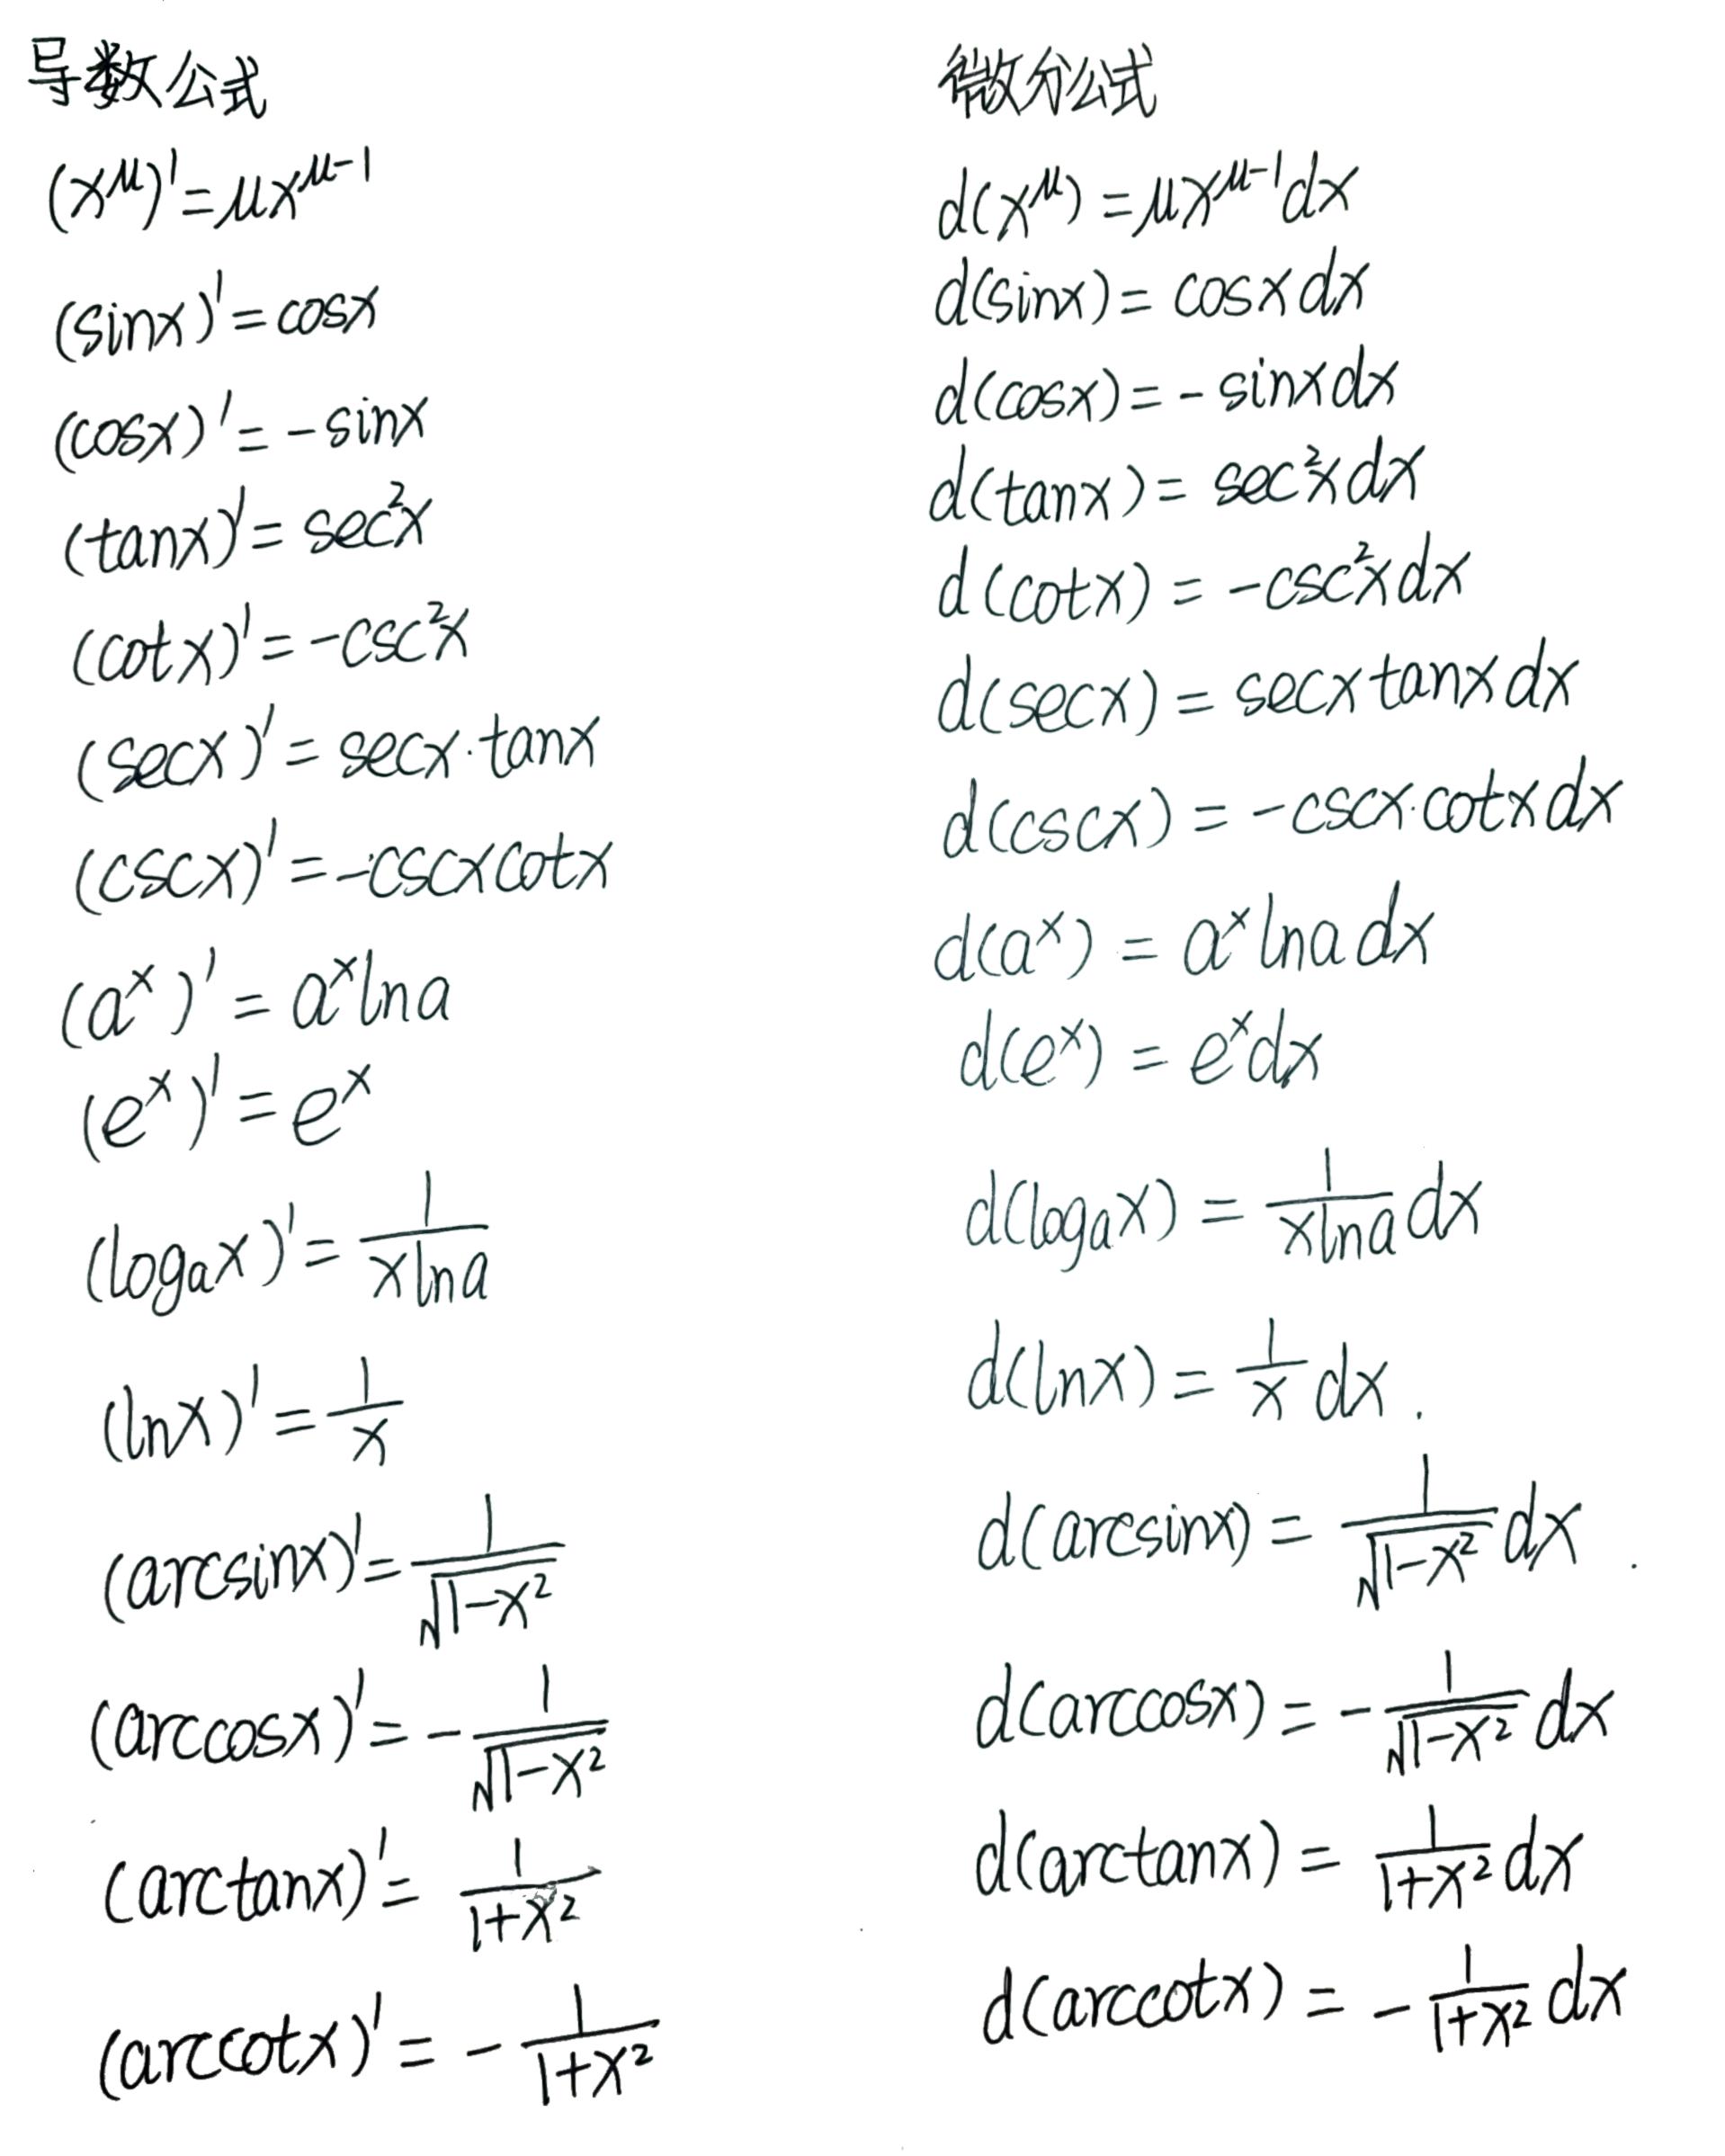 导数公式
(x^μ)' = μx^{μ-1}
(sinx)' = cosx
(cosx)' = -sinx
(tanx)' = sec²x
(cotx)' = -csc²x
(secx)' = secx·tanx
(cscx)' = -cscxcotx
(a^x)' = a^x lna
(e^x)' = e^x
(log_a x)' = \frac{1}{xlna}
(lnx)' = \frac{1}{x}
(arcsinx)' = \frac{1}{\sqrt{1-x²}}
(arccosx)' = -\frac{1}{\sqrt{1-x²}}
(arctanx)' = \frac{1}{1+x²}
(arccotx)' = -\frac{1}{1+x²}
微分公式
d(x^μ) = μx^{μ-1}dx
d(sinx) = cosxdx
d(cosx) = -sinxdx
d(tanx) = sec²xdx
d(cotx) = -csc²xdx
d(secx) = secxtanxdx
d(cscx) = -cscx·cotxdx
d(a^x) = a^x lnadx
d(e^x) = e^x dx
d(log_a x) = \frac{1}{xlna}dx
d(lnx) = \frac{1}{x}dx.
d(arcsinx) = \frac{1}{\sqrt{1-x²}}dx.
d(arccosx) = -\frac{1}{\sqrt{1-x²}}dx
d(arctanx) = \frac{1}{1+x²}dx
d(arccotx) = -\frac{1}{1+x²}dx